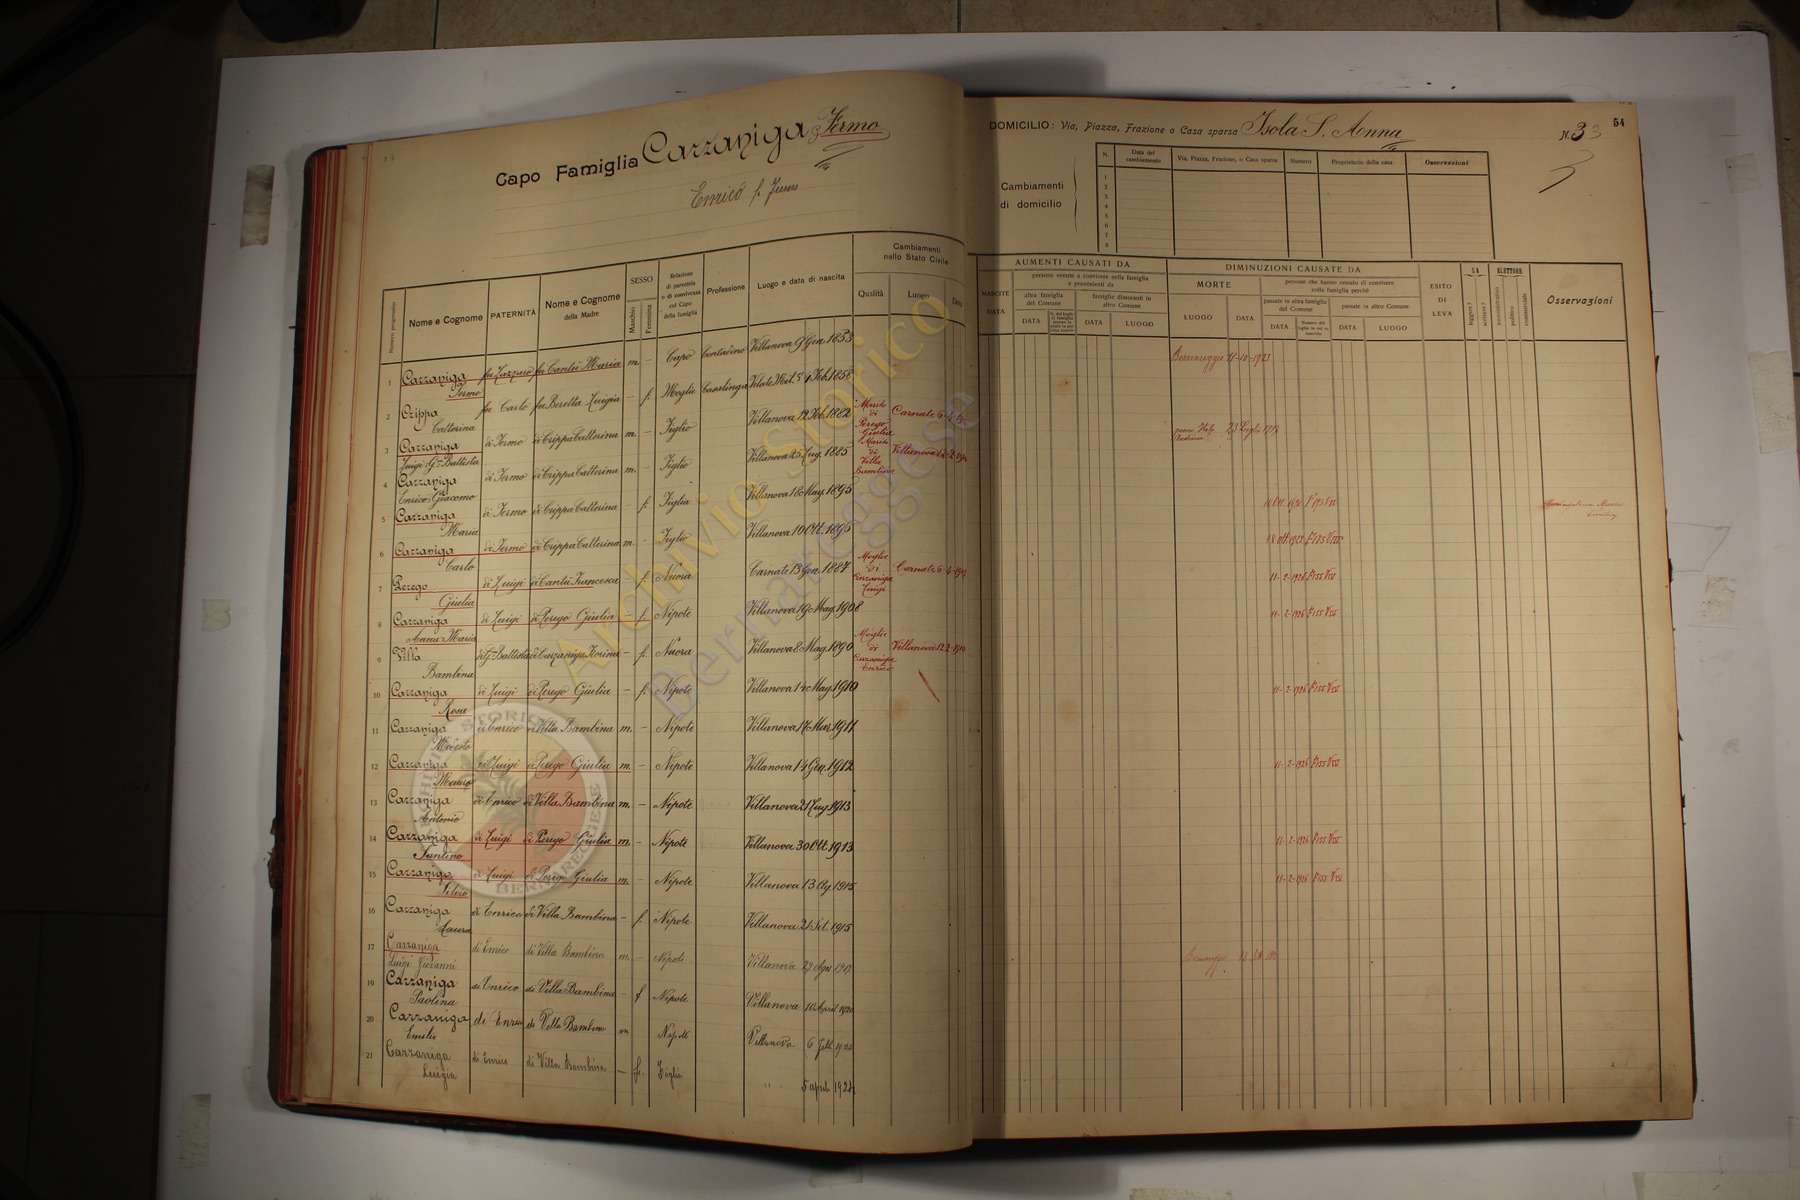 Capo Famiglia Cazzaniga Fermo
Enrico f. Fermo
Numero progressivo
Nome e Cognome
PATERNITÀ
Nome e Cognome della Madre
SESSO
Maschio
Femmina
Relazione di parentela o di convivenza col Capo della famiglia
Professione
Luogo e data di nascita
Cambiamenti nello Stato Civile
Qualità
Luogo
Data
1 Cazzaniga Fermo fu Lazzaro fu Cantù Maria m. - Capo Contadino Villanova 9 Gen. 1853
2 Crippa Catterina fu Carlo fu Beretta Luigia - f. Moglie Casalinga Velate Mil. 1 Feb. 1858
3 Cazzaniga Luigi Gio Battista di Fermo di Crippa Catterina m. - Figlio Villanova 12 Feb. 1882 Marito di Perego Giulia Carnate
4 Cazzaniga Enrico Giacomo di Fermo di Crippa Catterina m. - Figlio Villanova 25 Lug. 1885 Marito di Villa Bambina Villanova
5 Cazzaniga Maria di Fermo di Crippa Catterina - f. Figlia Villanova 18 Mag. 1895
6 Cazzaniga Carlo di Fermo di Crippa Catterina m. - Figlio Villanova 10 Ott. 1896
7 Perego Giulia di Luigi di Cantù Francesca - f. Nuora Carnate 13 Gen. 1887 Moglie di Cazzaniga Luigi Carnate
8 Cazzaniga Anna Maria di Luigi di Perego Giulia - f. Nipote Villanova 19 Mag. 1908
9 Villa Bambina di G. Battista di Cazzaniga - f. Nuora Villanova 8 Mag. 1890 Moglie di Cazzaniga Enrico Villanova 12-2-1910
10 Cazzaniga Rosa di Luigi di Perego Giulia - f. Nipote Villanova 14 Mag. 1910
11 Cazzaniga Modesto di Enrico di Villa Bambina m. - Nipote Villanova 17 Mar. 1911
12 Cazzaniga Mauro di Luigi di Perego Giulia m. - Nipote Villanova 14 Gen. 1912
13 Cazzaniga Antonio di Enrico di Villa Bambina m. - Nipote Villanova 21 Lug. 1913
14 Cazzaniga Santino di Luigi di Perego Giulia m. - Nipote Villanova 30 Ott. 1913
15 Cazzaniga Silvio di Luigi di Perego Giulia m. - Nipote Villanova 13 Ag. 1915
16 Cazzaniga Laura di Enrico di Villa Bambina - f. Nipote Villanova 21 Set. 1915
17 Cazzaniga Luigi Giovanni di Enrico di Villa Bambina m. - Nipote Villanova 29
19 Cazzaniga Paolina di Enrico di Villa Bambina - f Nipote Villanova 10 April 1920
20 Cazzaniga Emilio di Enrico di Villa Bambina m Nipote Villanova 6
21 Cazzaniga Luigia di Enrico di Villa Bambina - f. Figlia " 5 april
DOMICILIO: Via, Piazza, Frazione o Casa sparsa Isola S. Anna
N. 33
54
Cambiamenti di domicilio
N.
Data del cambiamento
Via, Piazza, Frazione, o Casa sparsa
Numero
Proprietario della casa
Osservazioni
1
2
3
4
5
6
7
8
AUMENTI CAUSATI DA
NASCITE
DATA
persone venute a convivere nella famiglia e provenienti da
altra famiglia del Comune
DATA
famiglie dimoranti in altro Comune
DATA
LUOGO
DIMINUZIONI CAUSATE DA
MORTE
LUOGO
DATA
persone che hanno cessato di convivere colla famiglia perchè
passate in altra famiglia del Comune
DATA
passate in altro Comune
DATA
LUOGO
ESITO DI LEVA
SA
leggere?
scrivere?
ELETTORE
amministrativo
politico
commerciale
Osservazioni
Bernareggio 21-10-1923
11-2-1926 F 155 V IV
11-2-1926 F 155 V IV
11-2-1926 F 155 V IV
11-2-1926 F 155 V IV
11-2-1926 F 155 V IV
11-2-1926 F 155 V IV
Archivio Storico
Bernareggese